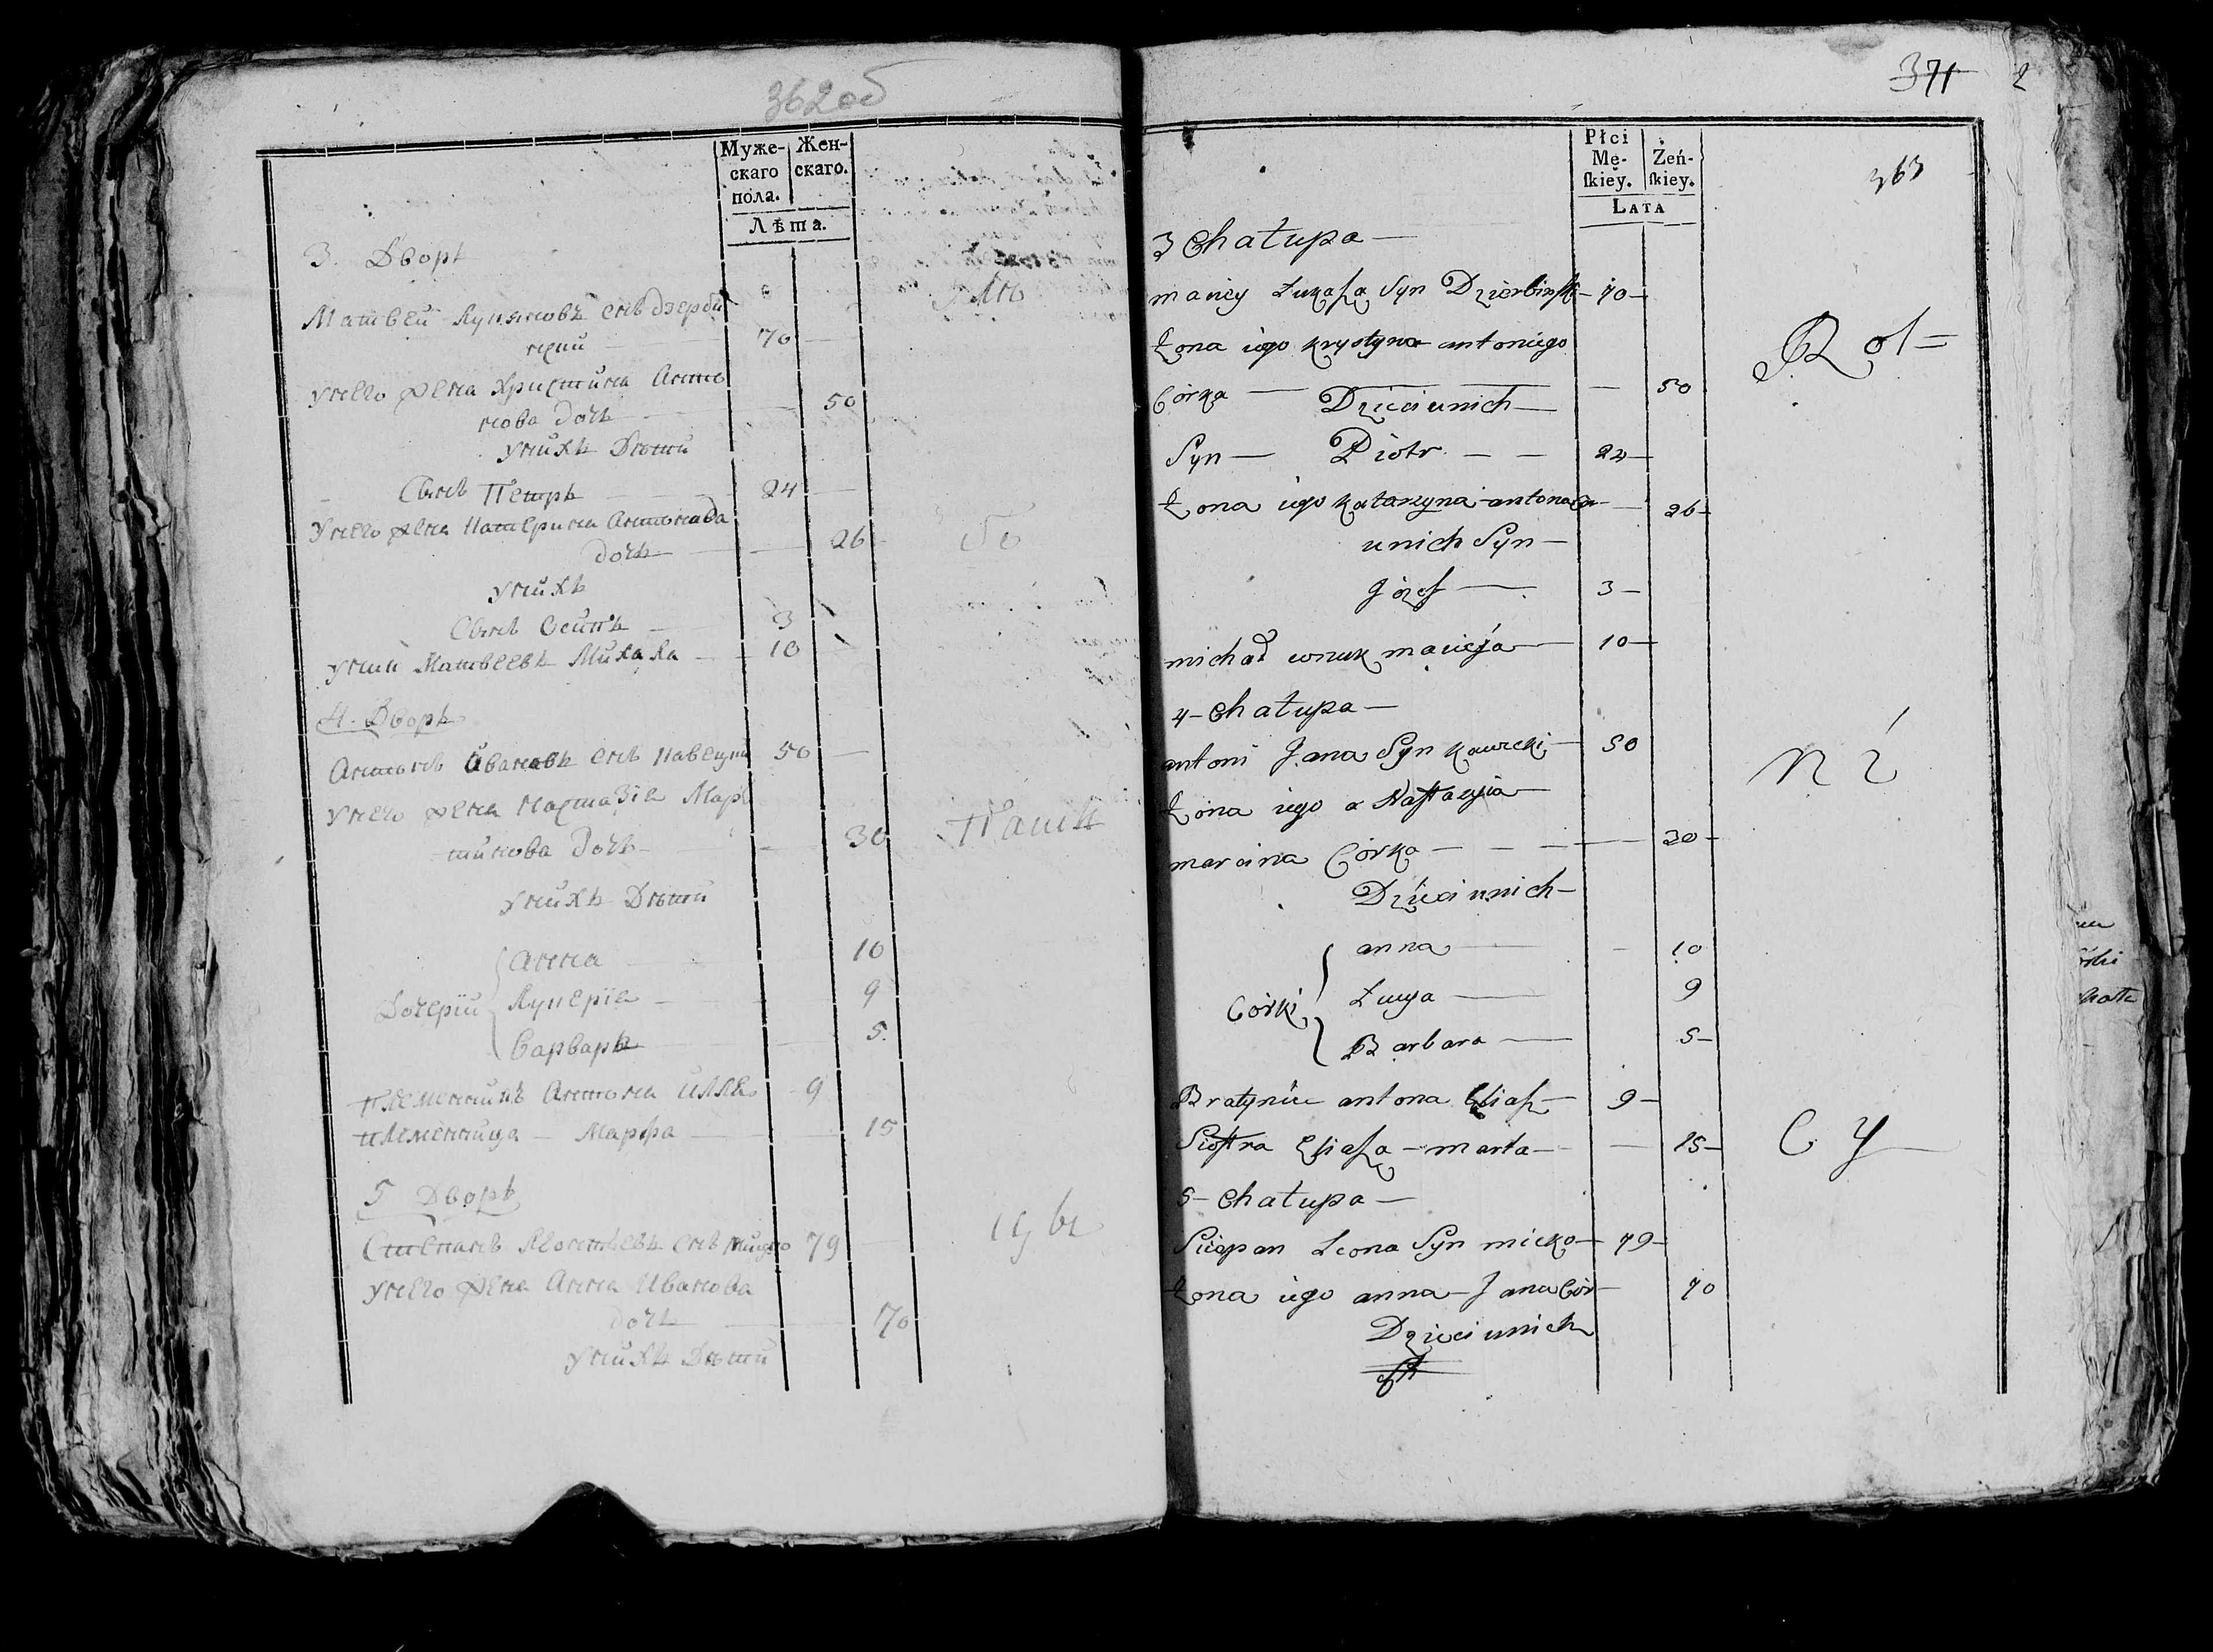 362 об
Муже-
скаго
пола.
Жен-
скаго.
Лѣта.
3. Дворъ
Матвей Лукяновъ снъ Дзерби
нскии 70
унего жена Христина Анто
нова дочь 50
унихъ Дѣти
Сынъ Петръ 24
Унего жена Катерина Антонава
дочь 26
унихъ
Сынъ Осипъ 3
Матвеевъ Михаля 10
4. Дворъ
Антонъ Ивановъ снъ Кавецки 50
унего жена Настазiя Мар
тинова дочь 30
унихъ Дѣти
Дочерiи
Анна 10
Лукерiя 9
Варвара 5.
Племенникъ Антона Илля 9
племенница – Марфа 15
5 Дворъ
Степанъ Леонтьевъ снъ Мицко 79
унего жена Анна Иванова
дочь 70
унихъ Дѣти
371
2
363
Płci
Mę-
ſkiey.
Żeń-
ſkiey.
LATA
3 Chałupa –
maciey Łukaſza Syn Dzierbinſki – 70 –
Żona iego krystyna antoniego
Córka – 50
Dzieci unich –
Syn – Piotr – – 24 –
Żona iego katarzyna antona Cor – 26 –
unich Syn –
Józef – 3 –
michał wnuk macieja – 10 –
4 – Chałupa –
antoni Jana Syn kawecki – 50
Żona iego a Naſtazyia –
marcina Córka – – – 30 –
Dzieci unich –
Córki
anna – 10
Łucya – 9
Barbara – 5 –
Bratynic antona Eliaſz – 9 –
Sioſtra Eliaſza – marta – 15 –
5 – Chałupa –
Sciepan Leona Syn micko – 79 –
Żona iego anna – Jana Cór – 70
Dzieci unich
Rol=
ni
cy